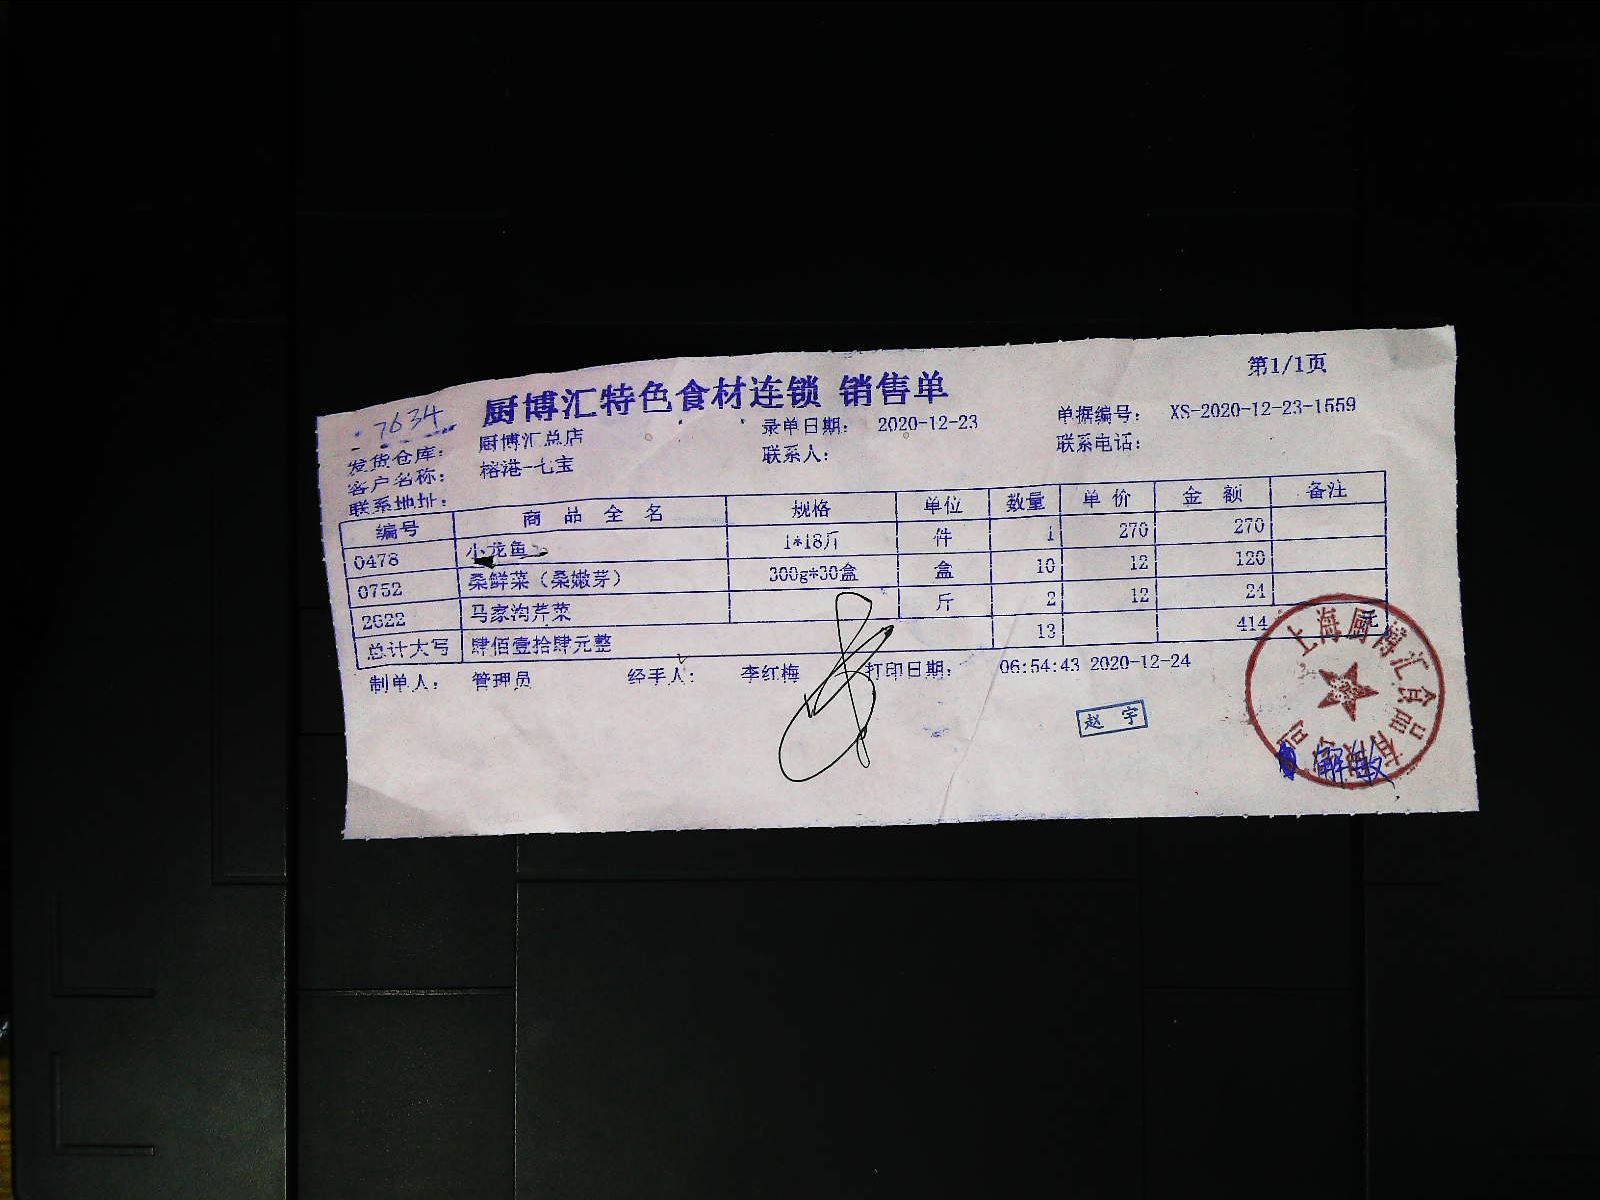 第1/1页
厨博汇特色食材连锁 销售单
7634
发货仓库： 厨博汇总店 录单日期： 2020-12-23 单据编号： XS-2020-12-23-1559
客户名称： 榕港-七宝 联系人： 联系电话：
联系地址：
编号 商品全名 规格 单位 数量 单价 金额 备注
0478 小龙鱼 1*18斤 件 1 270 270
0752 桑鲜菜（桑嫩芽） 300g*30盒 盒 10 12 120
2622 马家沟芹菜 斤 2 12 24
总计大写 肆佰壹拾肆元整 13 414 元
制单人： 管理员 经手人： 李红梅 打印日期： 06:54:43 2020-12-24
赵宇
上海厨博汇食品有限公司
解敏